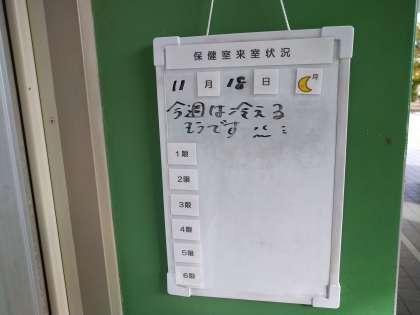 保健室来室状況
11月18日 月
今週は冷える
そうです
1限
2限
3限
4限
5限
6限